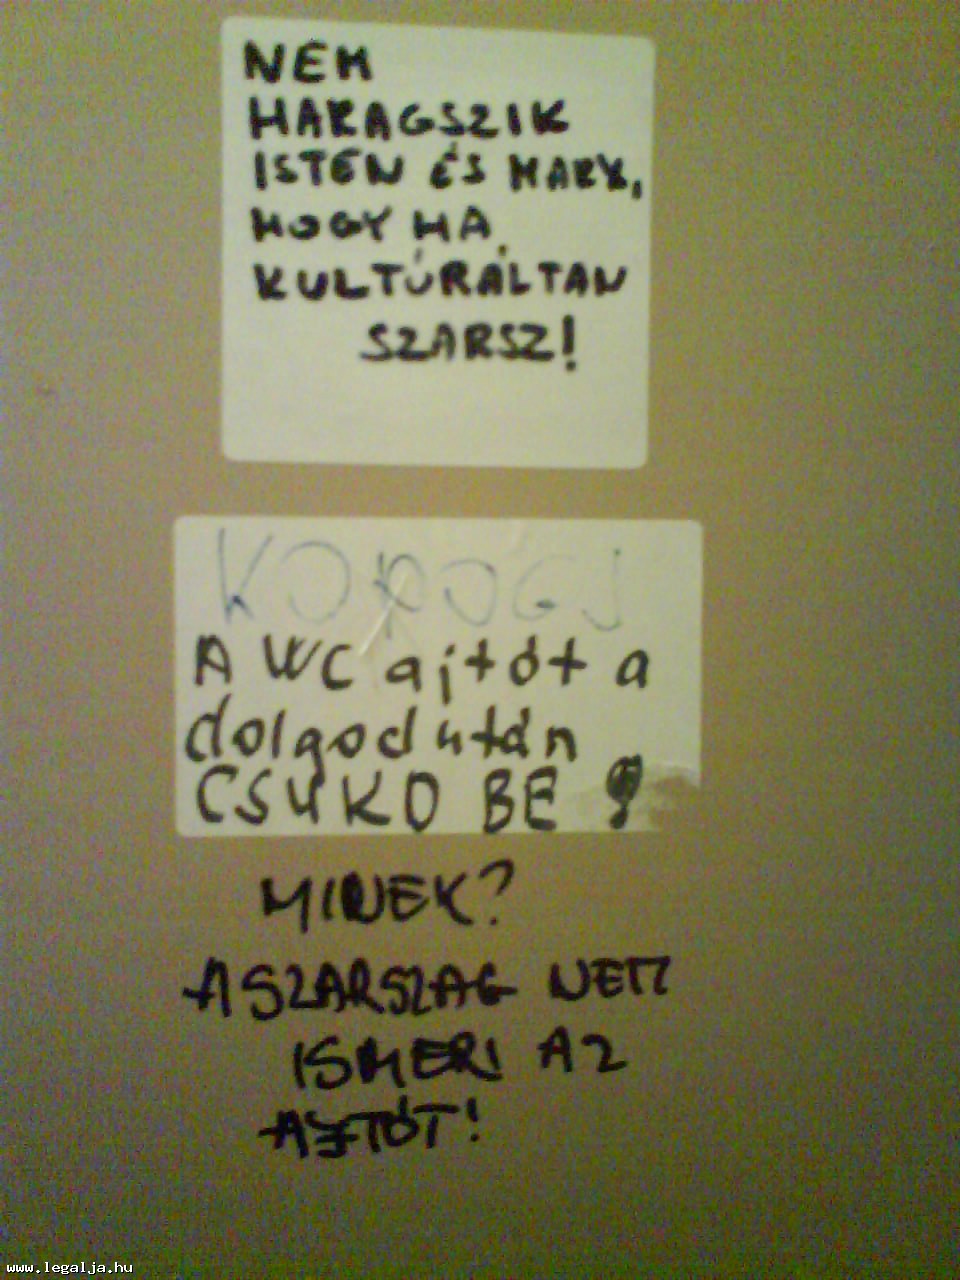 NEM
HARAGSZIK
ISTEN ÉS MARX,
HOGY HA
KULTÚRÁLTAN
SZARSZ!
KOROGI
A WC ajtót a
dolgod után
CSUKD BE
MINEK?
A SZARSZAG NEM
ISMERI AZ
AJTÓT!
www.legalja.hu